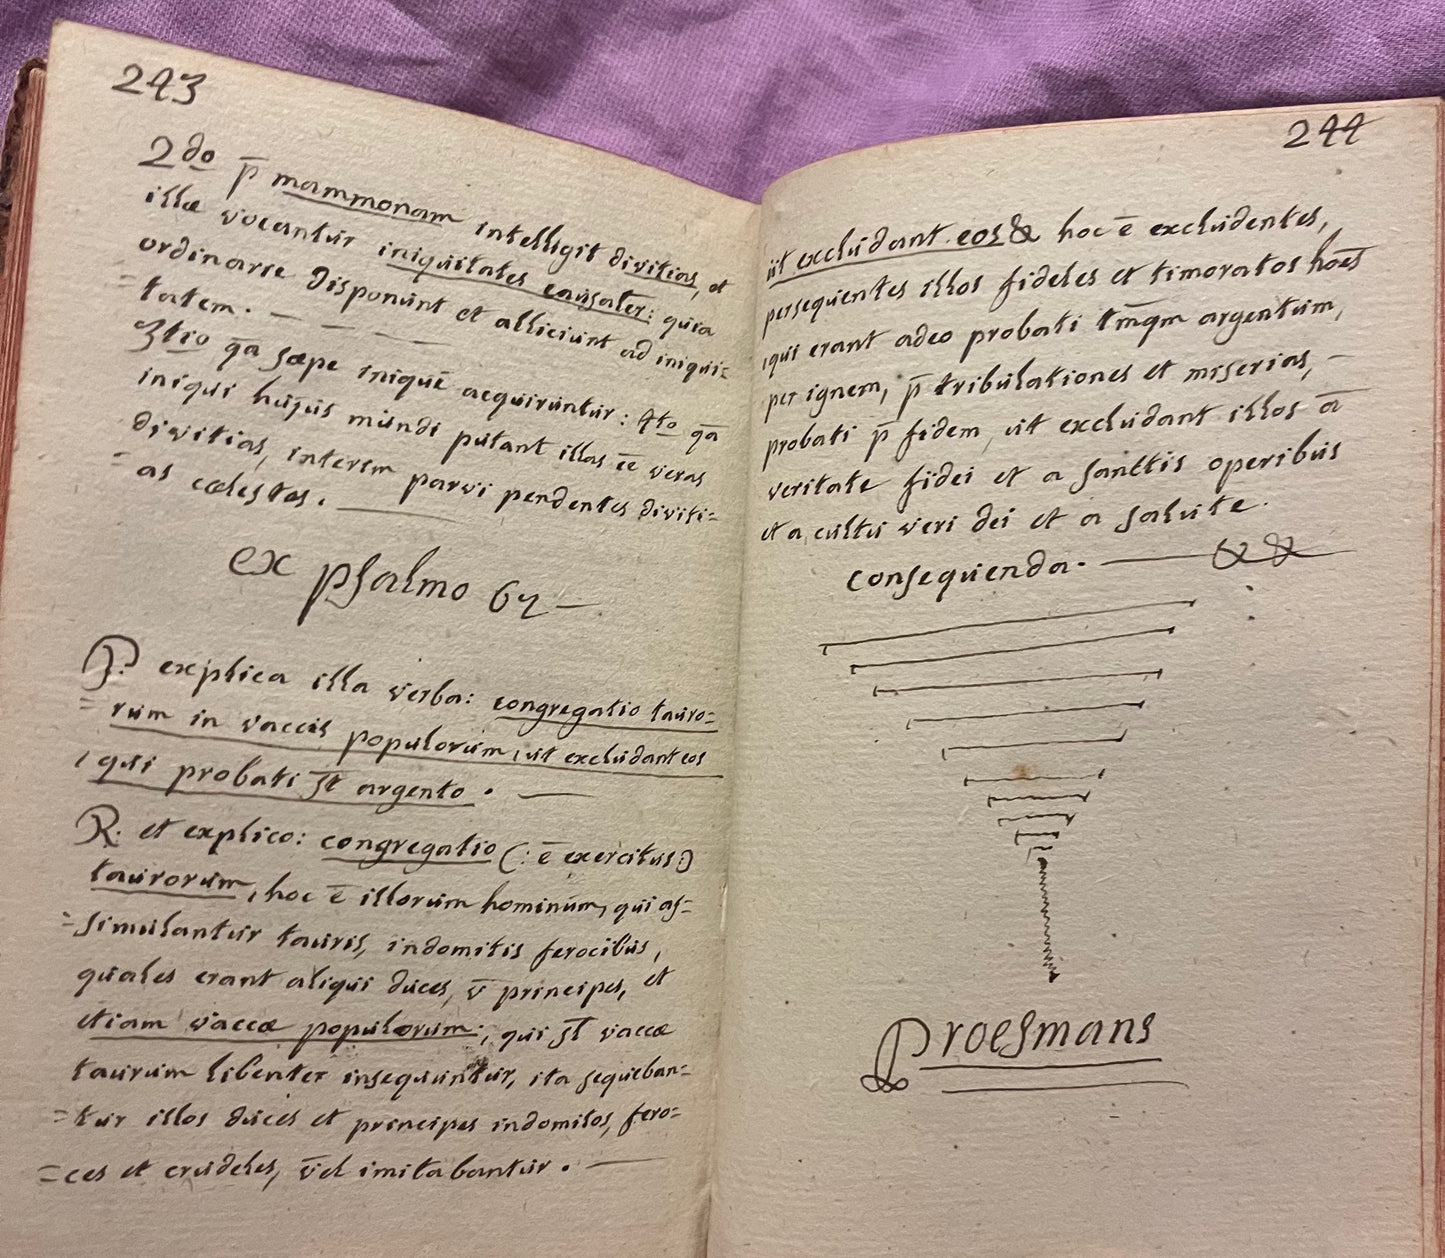 243
2do p̄ mammonam intelligit divitias, et
illæ vocantur iniquitates causater: quia
ordinarie disponunt et alliciunt ad iniqui=
=tatem. _ _ _ _
3tio q̄a sæpe iniquē acquiruntur: 4to q̄a
iniqui hujus mundi putant illas ēē veras
divitias, interim parvi pendentes diviti=
=as cœlestes. _
ex psalmo 67 _
P. explica illa verba: congregatio tauro=
=rum in vaccis populorum, ut excludant eos
, qui probati st argento. _
R. et explico: congregatio (: ē exercitus:)
taurorum, hoc ē illorum hominum, qui as=
=simulantur tauris, indomitis ferocibus,
quales erant aliqui duces, v̄ principes, et
etiam vaccæ populorum:, qui st vaccæ
taurum libenter insequuntur, ita sequeban=
=tur illos duces et principes indomitos, fero=
=ces et crudeles, v̄el imitabantur. _
244
ut excludant eos & hoc ē excludentes,
persequentes illos fideles et timoratos hōēs
, qui erant adeo probati tm̄qm argentum,
per ignem, p̄ tribulationes et miserias, _
probati p̄ fidem, ut excludant illos ā
veritate fidei et a sanctis operibus
et a cultu veri dei et a salute.
consequenda. _ & &
Proesmans